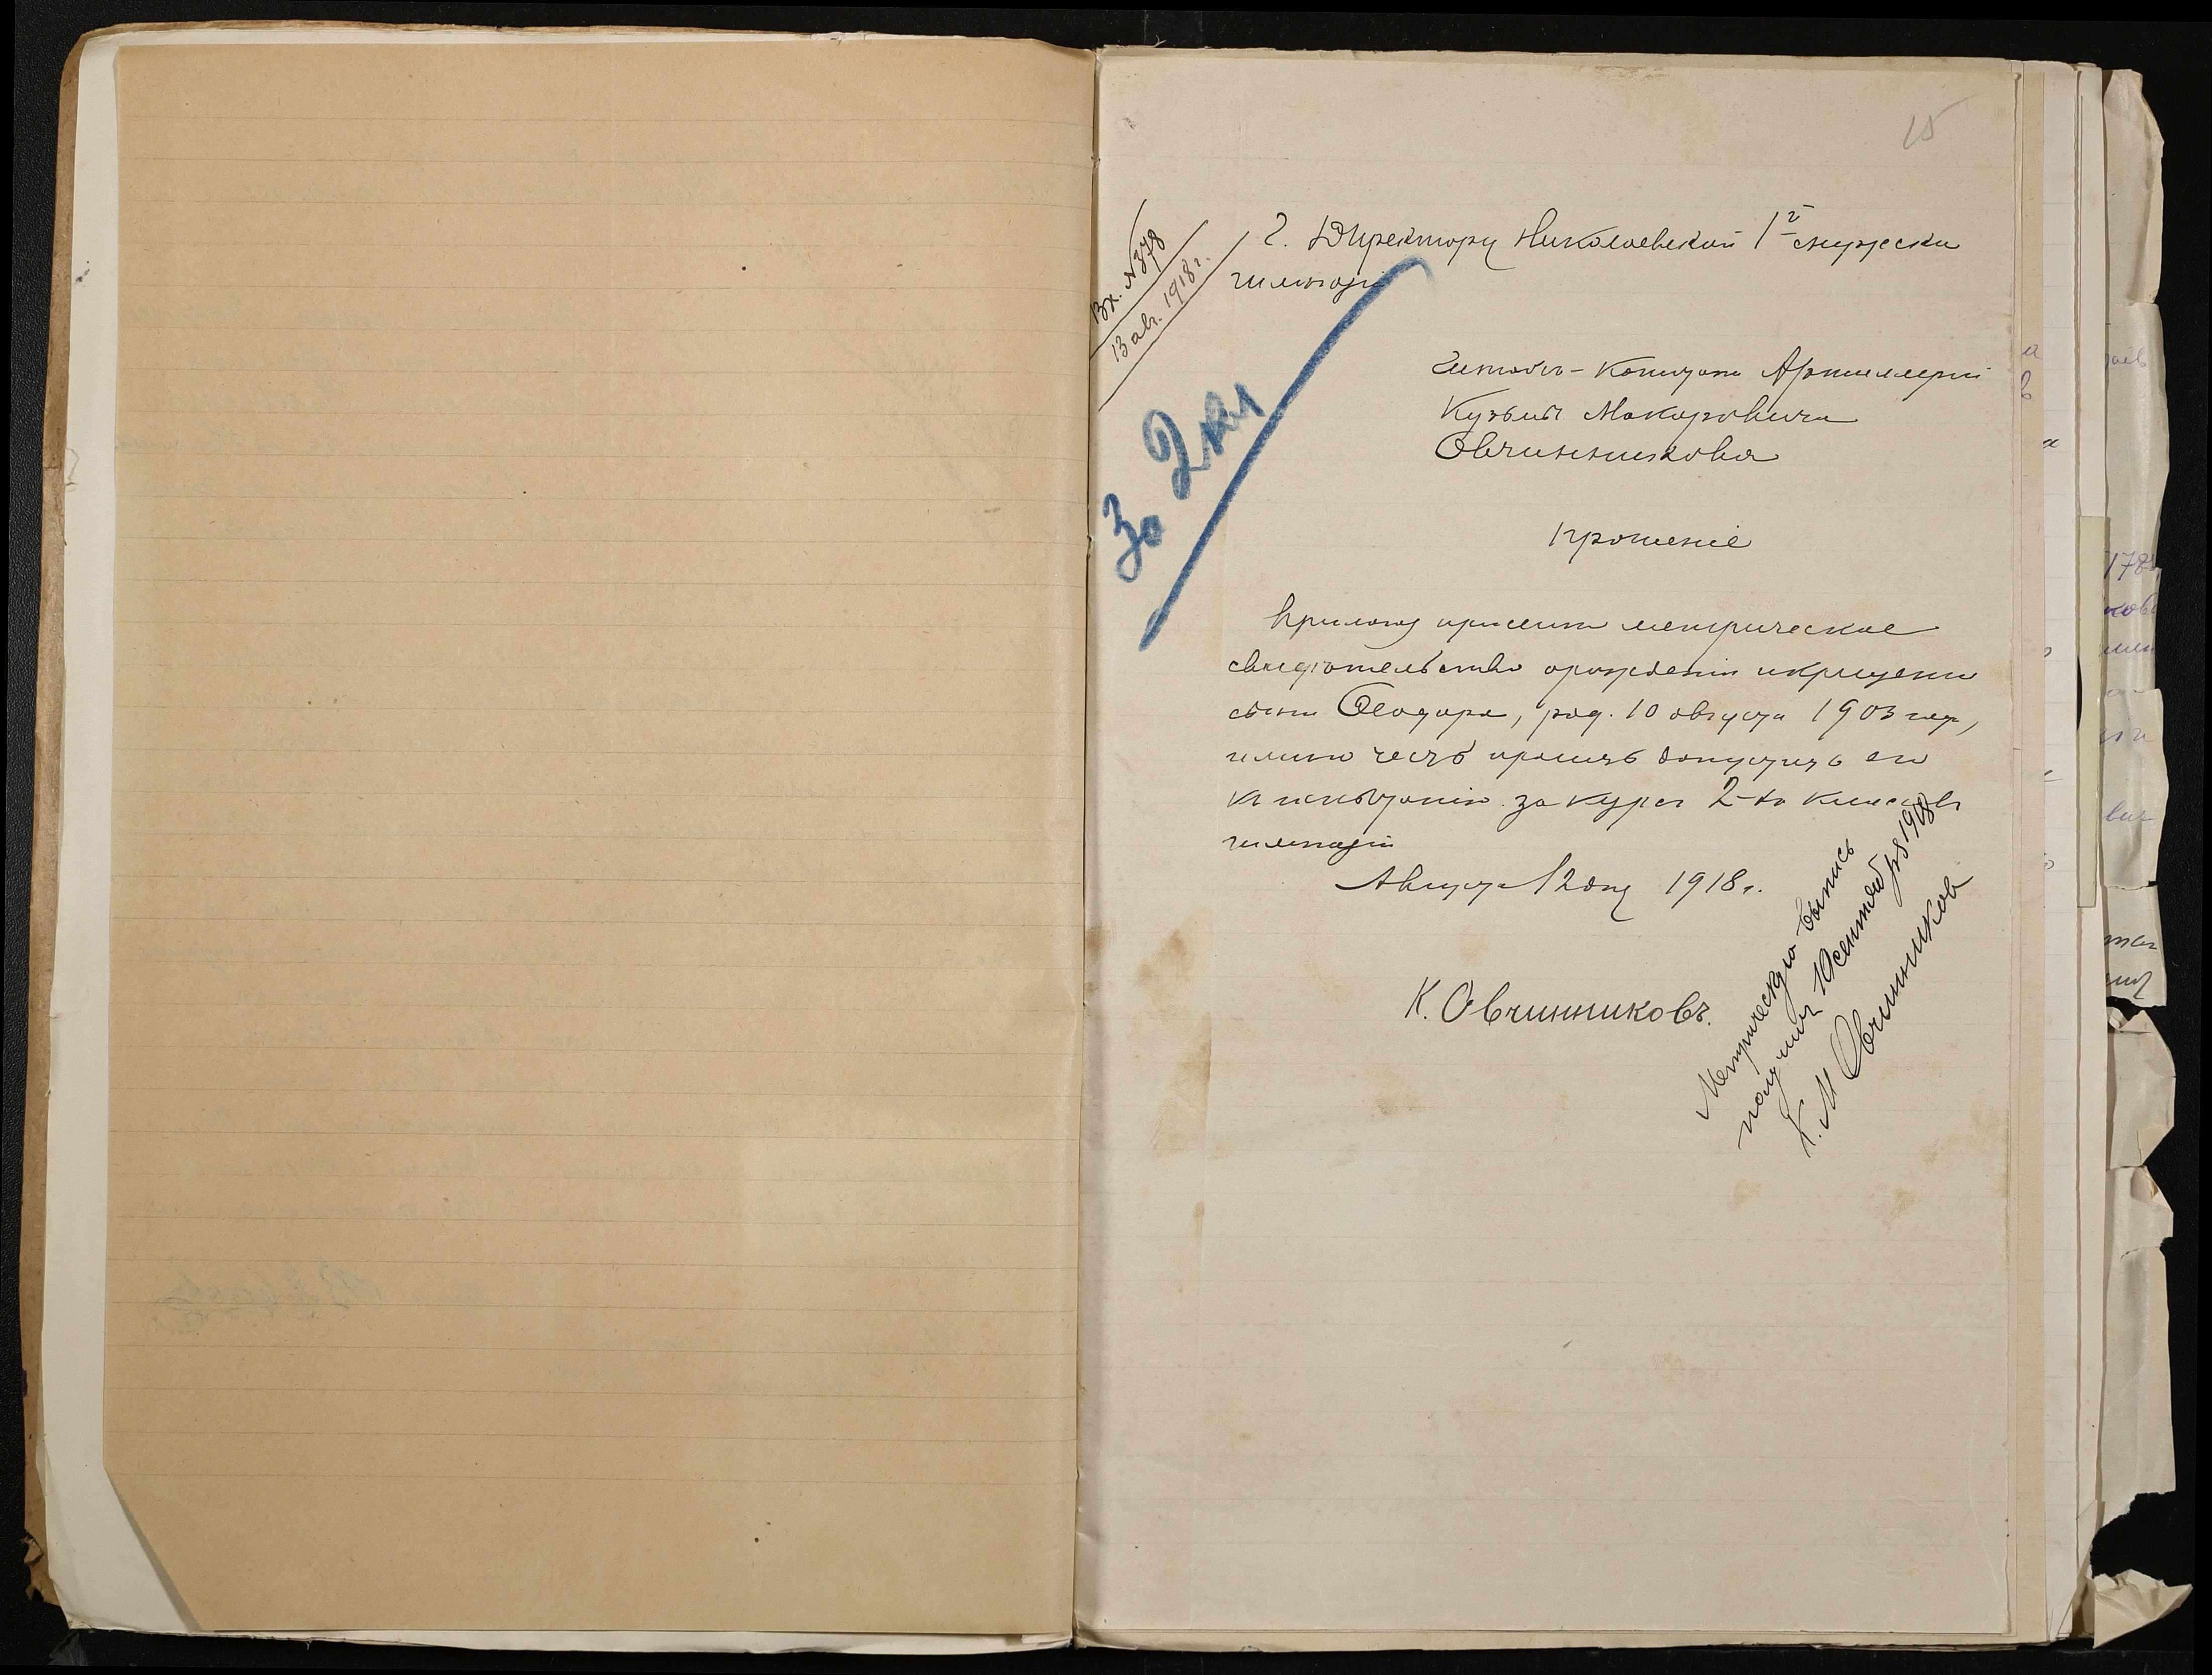 15
Вх. №378
13 авг. 1918 г.
За 2 кл
Г. Директору Николаевской 1й мужской
гимназіи
Штабсъ-Капитана Артиллеріи
Кузьмы Макаровича
Овчинникова
Прошеніе
Прилагая при семъ метрическое
свидѣтельство о рожденіи и крещеніи
сына Ѳеодора, род. 10 августа 1903 года,
имѣю честь просить допустить его
къ испытанію за курсъ 2-хъ классовъ
гимназіи
Августа 12 дня 1918 г.
К. Овчинниковъ.
Метрическую выпись
получилъ 10 сентября 1918
К. М Овчинников